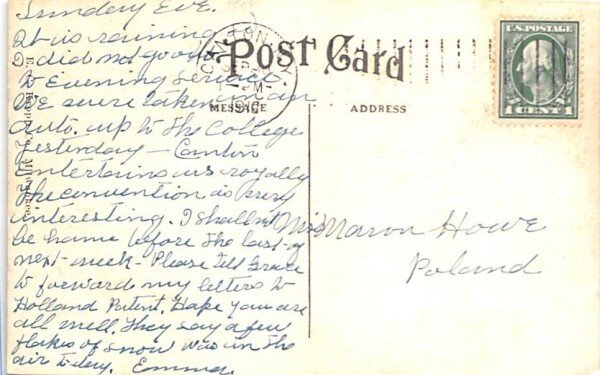 Sunday Eve.
It is raining
I did not go out
to evening service.
We were taken in an
auto. up to the College
yesterday - Canton
entertains us royally
The convention is very
interesting. I shall not
be home before the last of
next week - Please tell Grace
to forward my letters to
Holland Patent. Hope you are
all well. They say a few
flakes of snow was in the
air today. Emma.
Post Card
MESSAGE
ADDRESS
CANTON
U.S. POSTAGE
1 CENT 1
Mason Howe
Poland